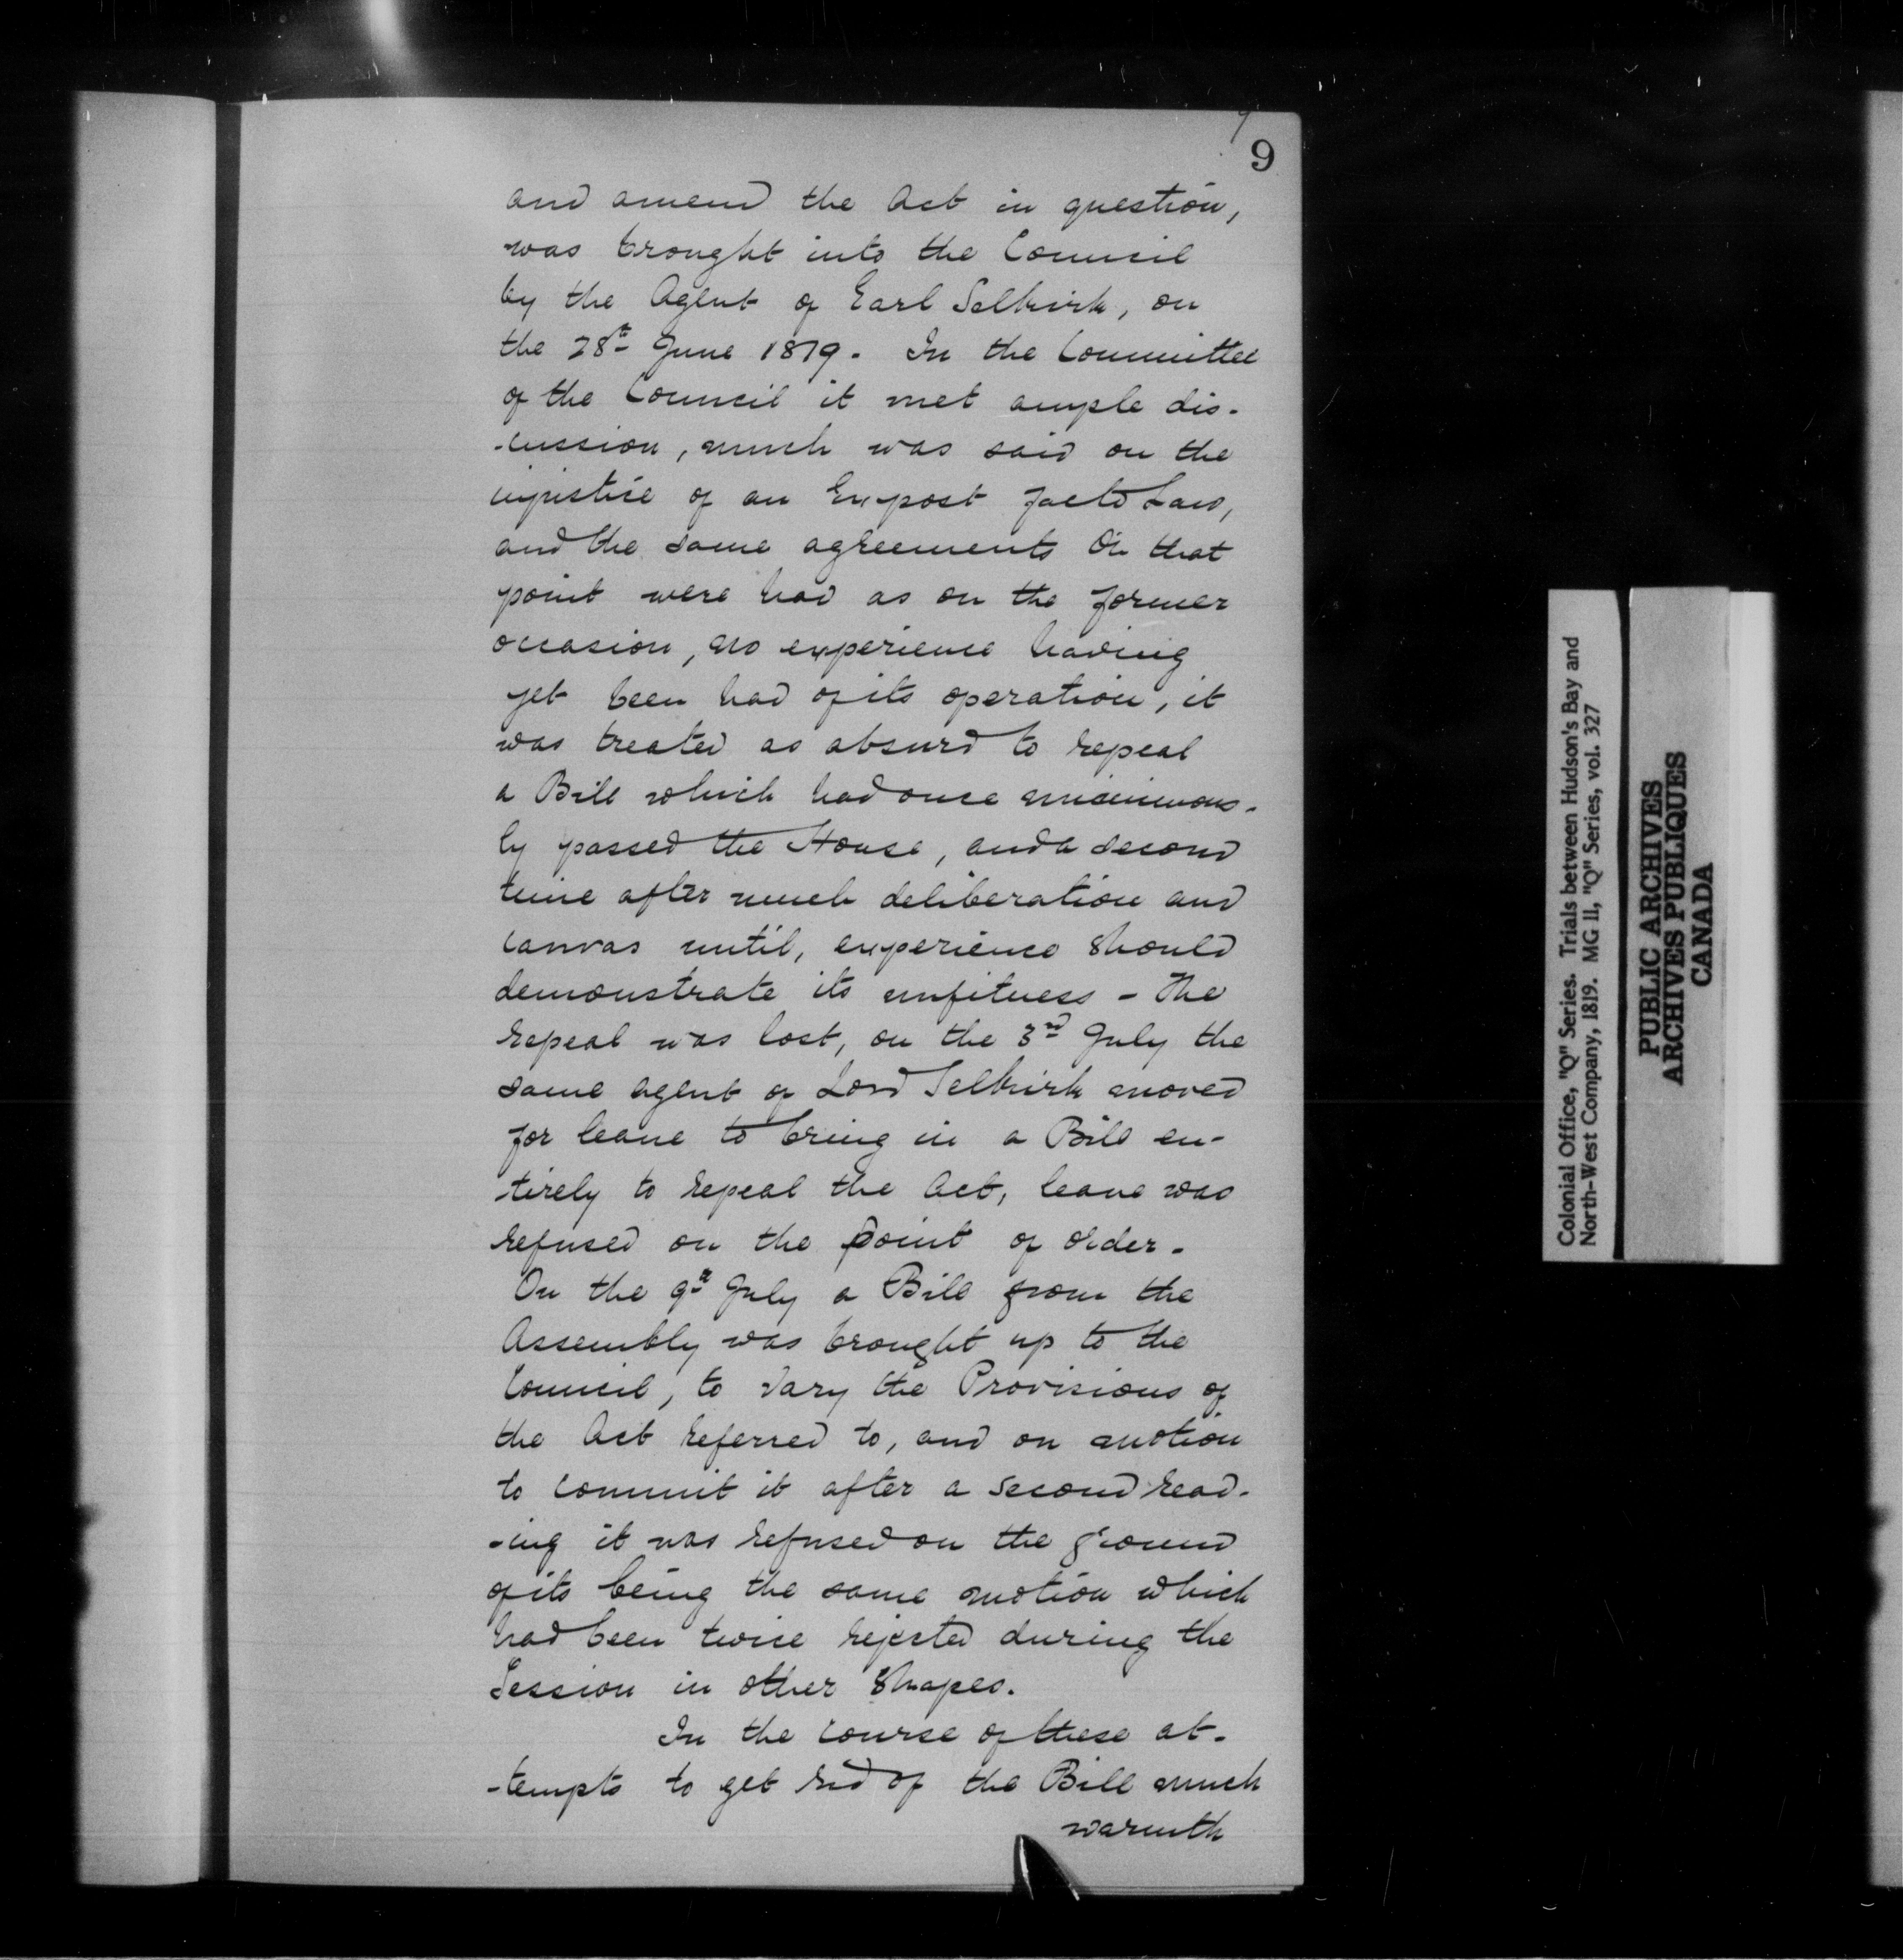 9
9
and amend the Act in question,
was brought into the Council
by the Agent of Earl Selkirk, on
the 28th June 1819. In the Committee
of the Council it met ample dis-
-cussion, much was said on the
injustice of an Expost facto Law,
and the same agreements on that
point were had as on the former
occasion, no experience having
yet been had of its operation, it
was treated as absurd to repeal
a Bill which had once unanimous-
ly passed the House, and a second
time after much deliberation and
canvas until, experience should
demonstrate its unfitness - The
repeal was lost, on the 3rd July the
same agent of Lord Selkirk moved
for leave to bring in a Bill en-
-tirely to repeal the Act, leave was
refused on the point of order.
On the 9th July a Bill from the
Assembly was brought up to the
Council, to vary the Provisions of
the Act referred to, and on motion
to commit it after a second read-
-ing it was refused on the ground
of its being the same motion which
had been twice rejected during the
Session in other Shapes.
In the course of these at-
-tempts to get rid of the Bill much
warmth
Colonial Office, "Q" Series. Trials between Hudson's Bay and
North-West Company, 1819. MG 11, "Q" Series, vol. 327
PUBLIC ARCHIVES
ARCHIVES PUBLIQUES
CANADA